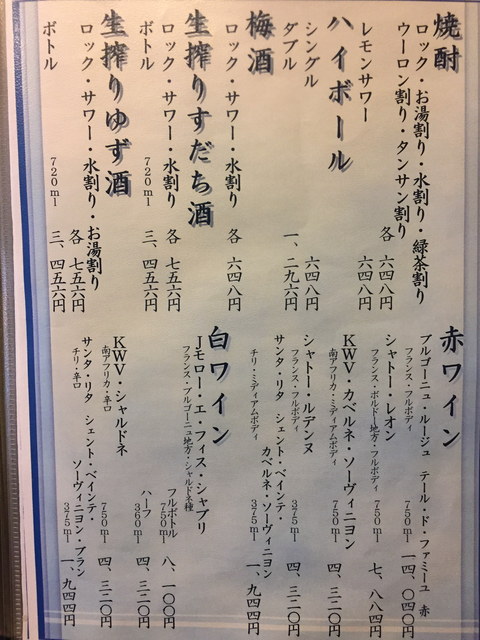 焼酎
ロック・お湯割り・水割り・緑茶割り
ウーロン割り・タンサン割り
各 六四八円
レモンサワー 六四八円
ハイボール
シングル 六四八円
ダブル 一、二九六円
梅酒
ロック・サワー・水割り 各 六四八円
生搾りすだち酒
ロック・サワー・水割り 各 七五六円
ボトル 720ml 三、四五六円
生搾りゆず酒
ロック・サワー・水割り・お湯割り
各 七五六円
ボトル 720ml 三、四五六円
赤ワイン
ブルゴーニュ・ルージュ テール・ド・ファミーユ 赤
フランス・フルボディ 750ml 一四、〇四〇円
シャトー・レオン
フランス・ボルドー地方・フルボディ 750ml 七、八八四円
KWV・カベルネ・ソーヴィニヨン
南アフリカ・ミディアムボディ 750ml 四、三二〇円
シャトー・ルデンヌ
フランス・フルボディ 375ml 四、三二〇円
サンタ・リタ シェント・ベインテ・
カベルネ・ソーヴィニヨン
チリ・ミディアムボディ 375ml 一、九四四円
白ワイン
Jモロー・エ・フィス・シャブリ
フランス・ブルゴーニュ地方・シャルドネ種
フルボトル 750ml 八、一〇〇円
ハーフ 360ml 四、三二〇円
KWV・シャルドネ
南アフリカ・辛口 750ml 四、三二〇円
サンタ・リタ シェント・ベインテ・
ソーヴィニヨン・ブラン
チリ・辛口 375ml 一、九四四円